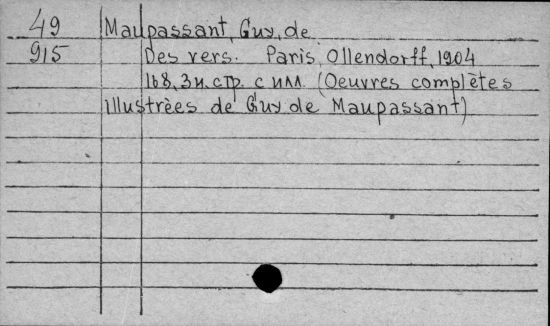 49 Maupassant, Guy, de
915 Des vers. Paris, Ollendorff, 1904
168, 3 н. стр. с илл. (Oeuvres complètes
illustrèes de Guy de Maupassant)